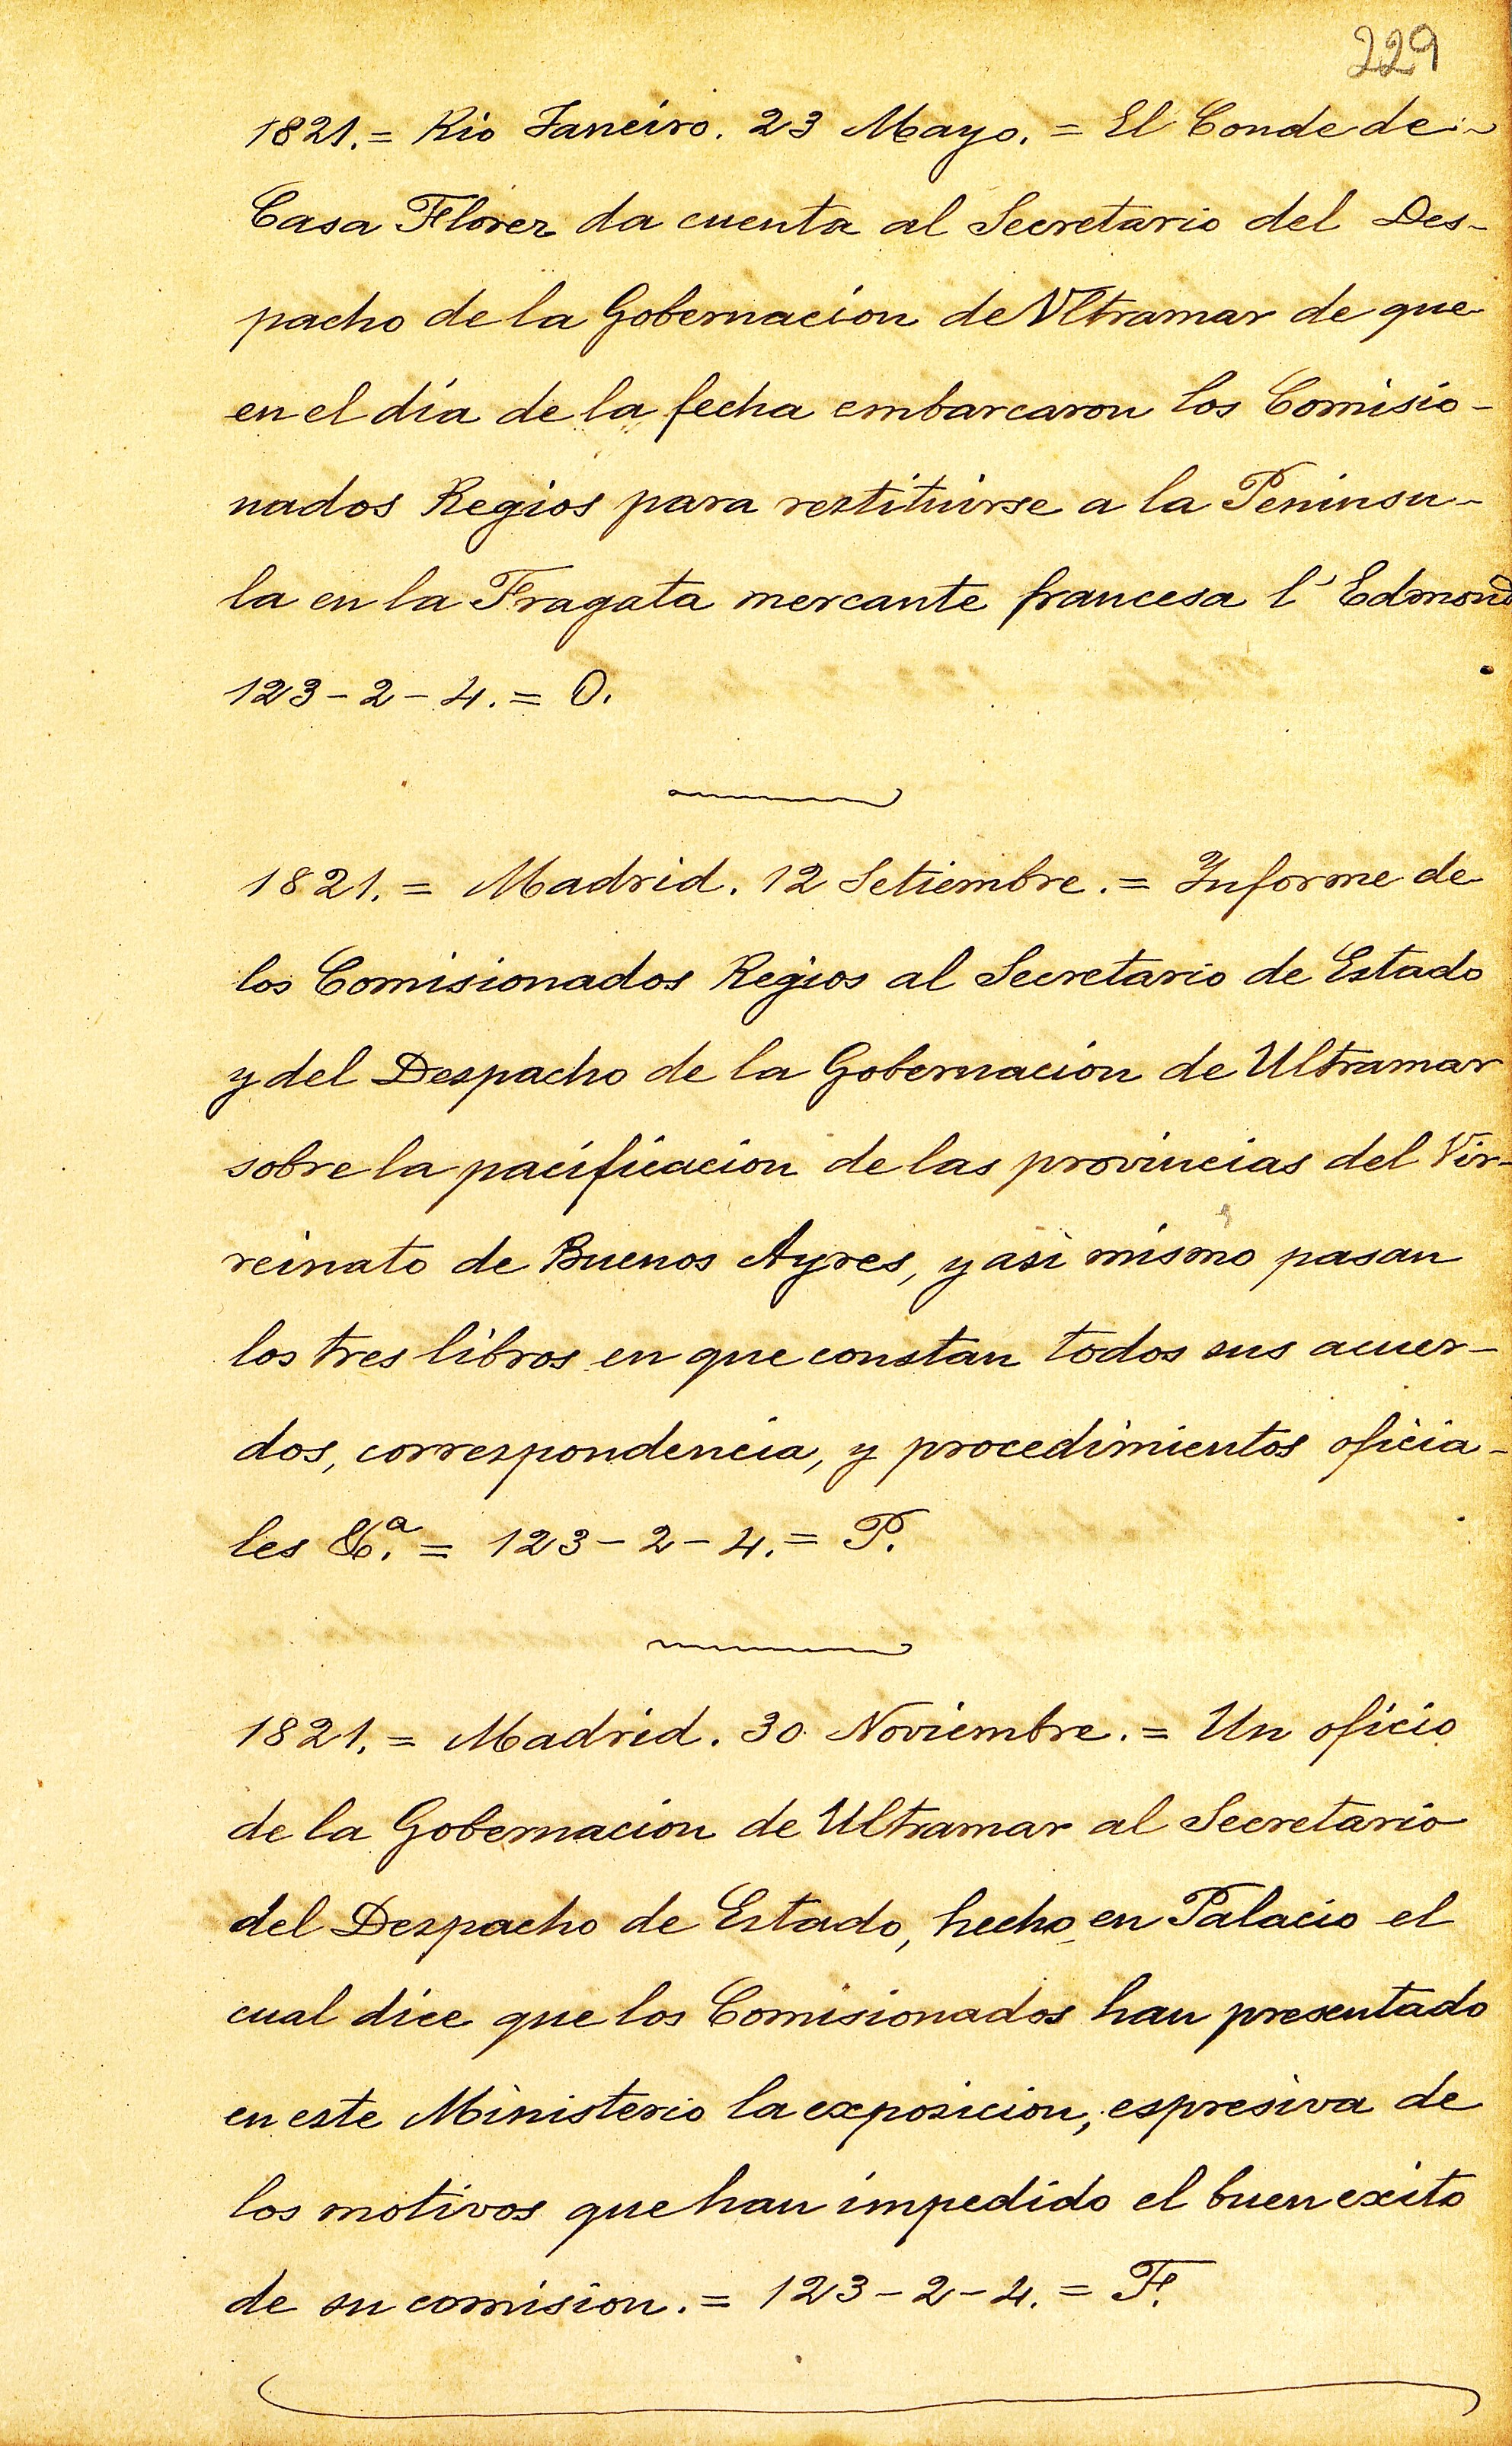 229
1821.= Rio Janeiro. 23 Mayo. = El Conde de
Casa Florez da cuenta al Secretario del Des-
pacho de la Gobernacion de Ultramar de que
en el dia de la fecha embarcaron los Comisio-
nados Regios para restituirse a la Peninsu-
la en la Fragata mercante francesa l' Edmond
123-2-4.= O.
1821. = Madrid. 12 Setiembre. = Informe de
los Comisionados Regios al Secretario de Estado
y del Despacho de la Gobernacion de Ultramar
sobre la pacificacion de las provincias del Vir-
reinato de Buenos Ayres, y asi mismo pasan
los tres libros en que constan todos sus acuer-
dos, correspondencia, y procedimientos oficia-
les &.ª = 123-2-4.= P.
1821. = Madrid. 30 Noviembre. = Un oficio
de la Gobernacion de Ultramar al Secretario
del Despacho de Estado, hecho en Palacio el
cual dice que los Comisionados han presentado
en este Ministerio la exposicion, espresiva de
los motivos que han impedido el buen exito
de su comision. = 123-2-4. = F.